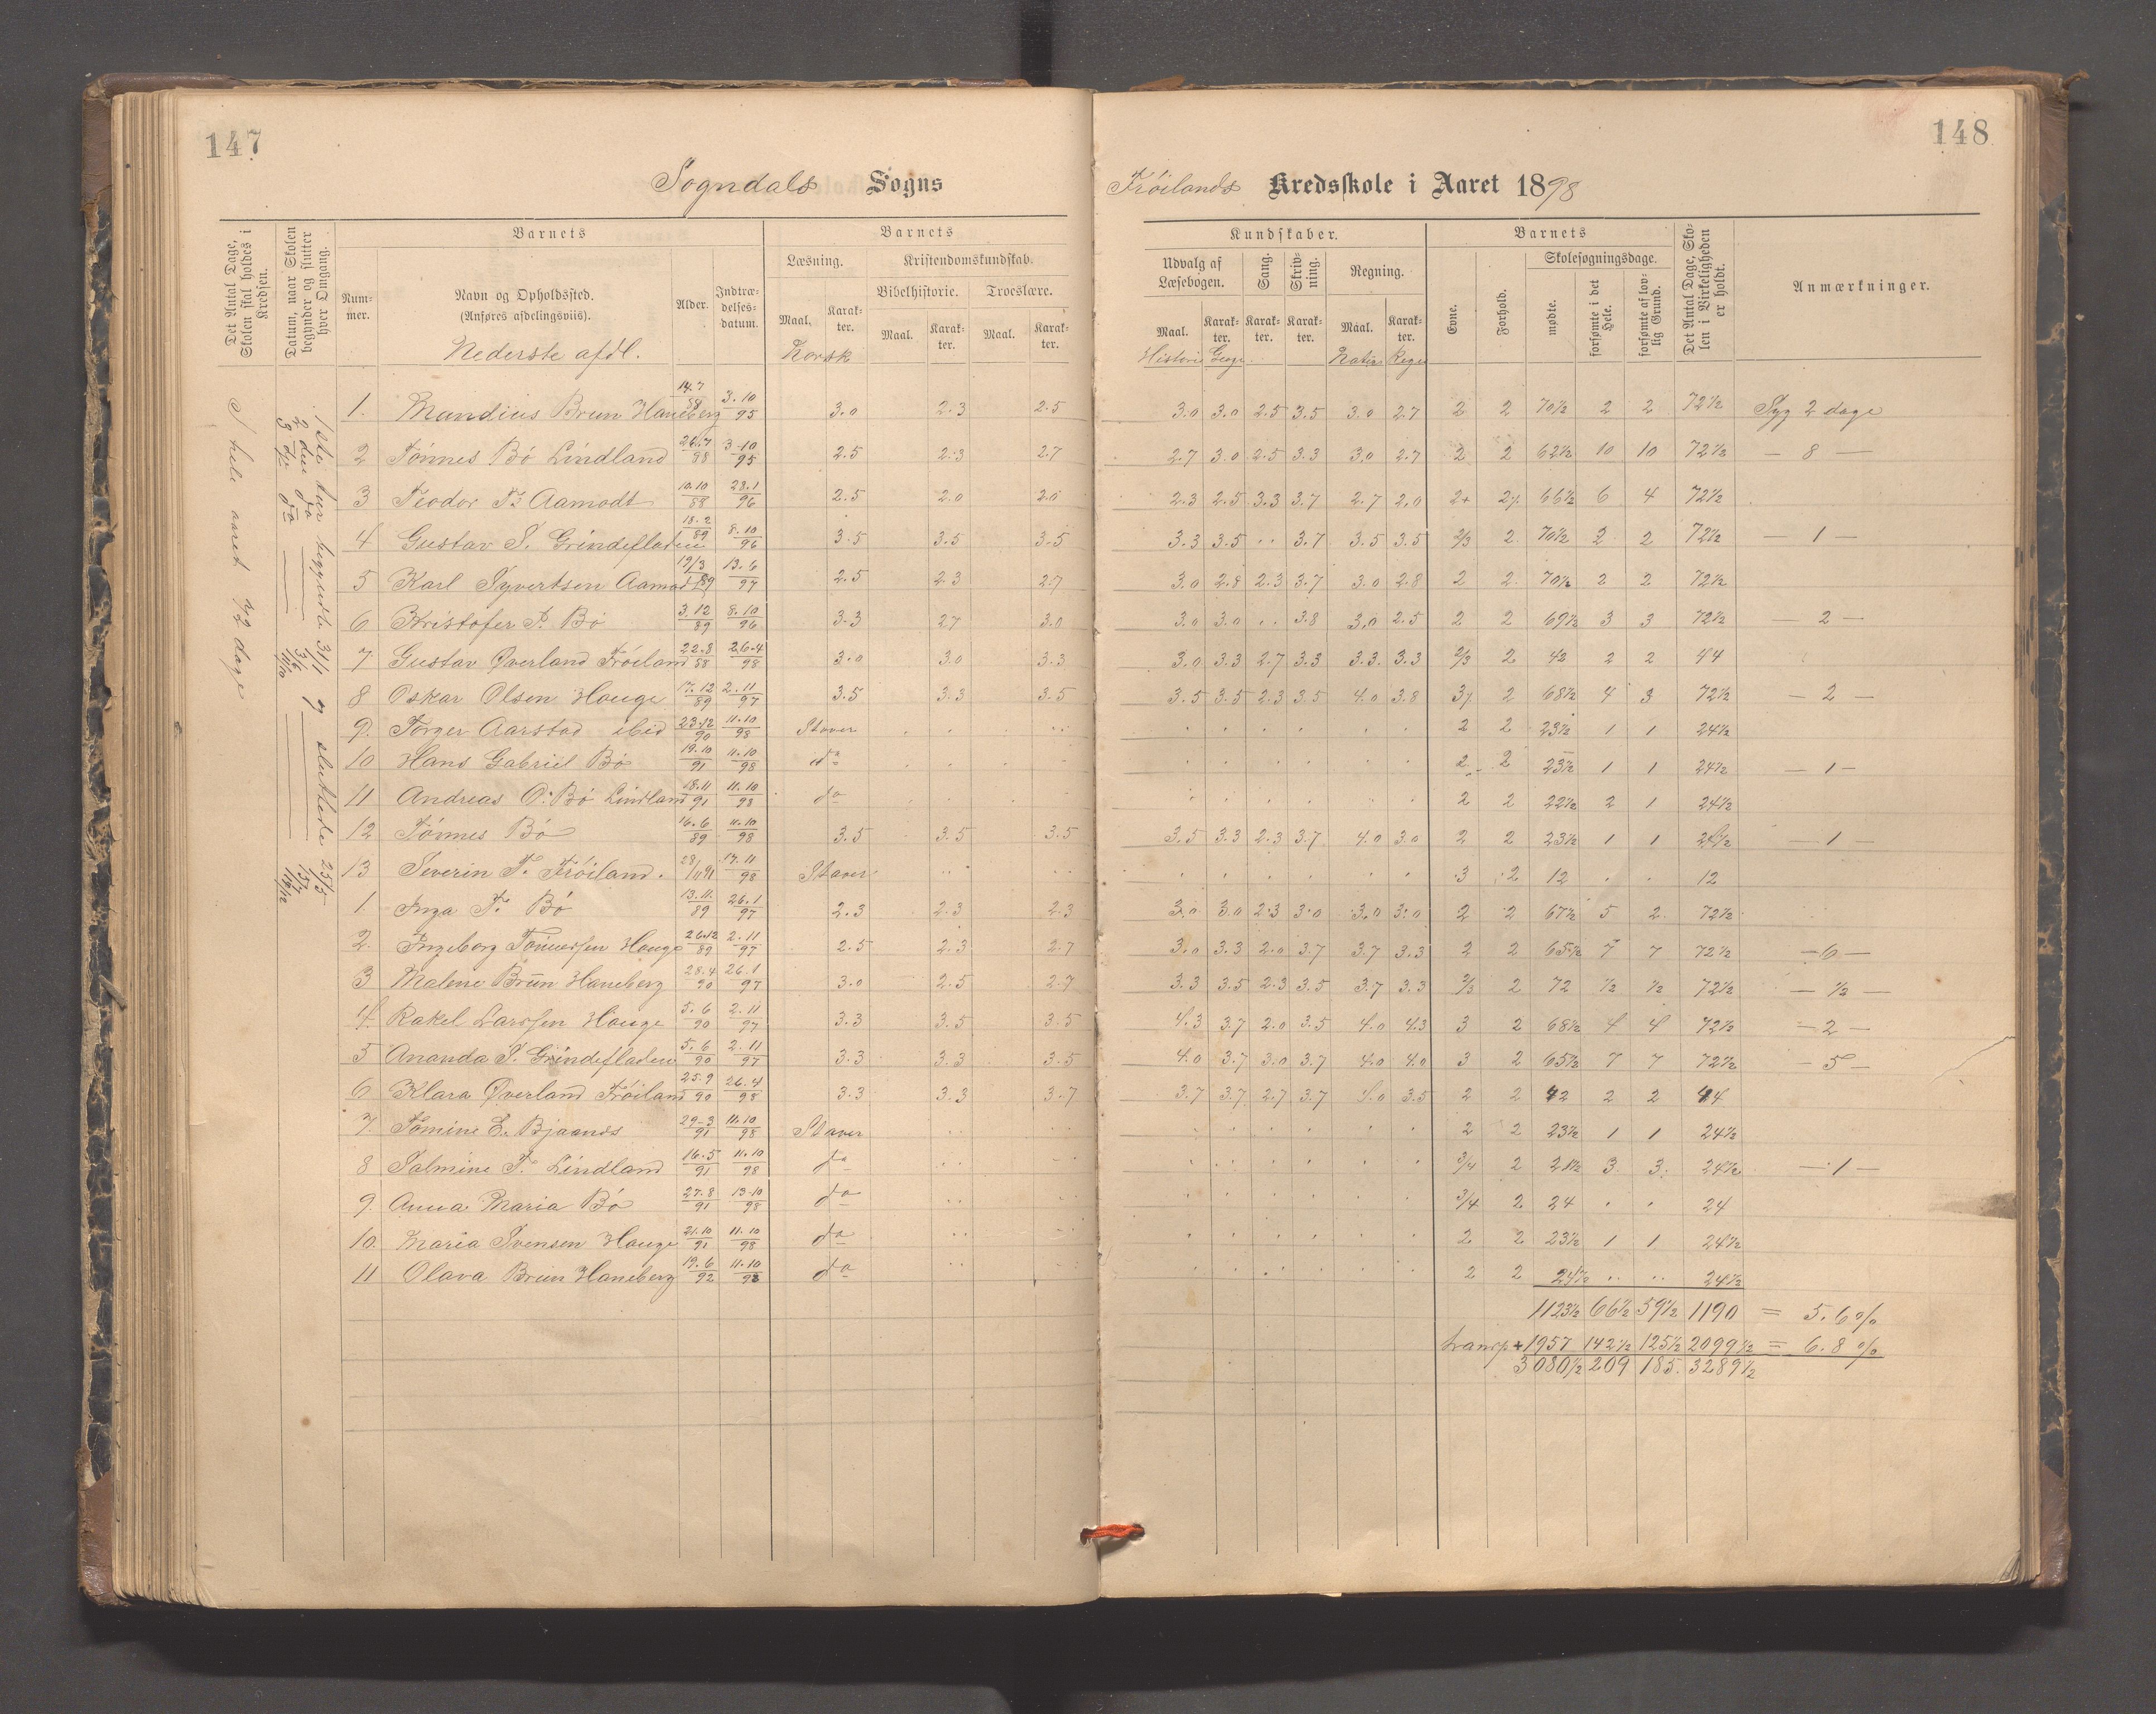 147
148
Sogndals Sogns
Frøilands Kredsskole i Aaret 1898
Det Antal Dage, Skolen skal holdes i Kredsen.
Datum, naar Skolen begynder og slutter hver Omgang.
Barnets
Barnets
Kundskaber.
Barnets
Nummer.
Navn og Opholdssted.
(Anføres afdelingsviis).
Nederste afdl.
Alder.
Indtrædelsesdatum.
Læsning.
Maal.
Karakter.
Norsk
Kristendomskundskab.
Bibelhistorie.
Troeslære.
Maal.
Karakter.
Maal.
Karakter.
Udvalg af Læsebogen.
Maal.
Karakter.
Historie Geogr
Sang.
Karakter.
Skrivning.
Karakter.
Regning.
Maal.
Karakter.
Natur Regn
Evne.
Forhold.
Skolesøgningsdage.
mødte.
forsømte i det Hele.
forsømte af lovlig Grund.
Det Antal Dage, Skolen i Virkeligheden er holdt.
Anmærkninger.
I hele aaret 72 dage
1ste tur begyndte 31/1 og sluttede 25/5
2den do 3/6 15/7
3 do 11/10 16/12
1. Mandius Brun Haneberg 14.7/88 3.10/95 3.0 2.3 2.5 3.0 3.0 2.5 3.5 3.0 2.7 2 2 70½ 2 2 72½ Syg 2 dage
2 Tönnes Bö Lindland 26.7/88 3-10/95 2.5 2.3 2.7 2.7 3.0 2.5 3.3 3.0 2.7 2 2 62½ 10 10 72½ — 8 —
3 Teodor T. Aamodt 10.10/88 28.1/96 2.5 2.0 2.0 2.3 2.5 3.3 3.7 2.7 2.0 2+ 2 66½ 6 4 72½
4 Gustav S. Grindefladen 18.2/89 8.10/96 3.5 3.5 3.5 3.3 3.5 .. 3.7 3.5 3.5 2/3 2 70½ 2 2 72½ — 1 —
5 Karl Syvertsen Aamodt 19/3 89 13.6/97 2.5 2.3 2.7 3.0 2.8 2.3 3.7 3.0 2.8 2 2 70½ 2 2 72½
6 Kristofer P. Bö 3.12/89 8.10/96 3.3 2.7 3.0 3.0 3.0 .. 3.8 3.0 2.5 2 2 69½ 3 3 72½ — 2 —
7 Gustav Qverland Fröiland 22.8/88 26.4/98 3.0 3.0 3.3 3.0 3.3 2.7 3.3 3.3 3.3 2/3 2 42 2 2 44
8 Oskar Olsen Hauge 17.12/89 2.11/97 3.5 3.3 3.5 3.5 3.5 2.3 3.5 4.0 3.8 3 2 68½ 4 3 72½ — 2 —
9. Torger Aarstad ibid 23.12/90 11.10/98 Staver 2 2 23½ 1 1 24½
10 Hans Gabriel Bö 19.10/91 11.10/98 do 2 2 23½ 1 1 24½ — 1 —
11 Andreas O. Bö Lindland 18.11/91 11.10/98 do 2 2 22½ 2 1 24½
12 Tönnes Bö 16.6/89 11.10/98 3.5 3.5 3.5 3.5 3.3 2.3 3.7 4.0 3.0 2 2 23½ 1 1 24½ — 1 —
13 Severin T. Fröiland. 28/11 91 17.11/98 Staver 3 2 12 . . 12
1 Inga T. Bö 13.11./89 26.1/97 2.3 2.3 2.3 3.0 3.0 2.3 3.0 3.0 3.0 2 2 67½ 5 2 72½
2. Ingeborg Tönnessen Hauge 26.12/89 2.11/97 2.5 2.3 2.7 3.0 3.3 2.0 3.7 3.7 3.3 2 2 65½ 7 7 72½ — 6 —
3 Malene Brun Haneberg 28.4/90 26.1/97 3.0 2.5 2.7 3.3 3.5 2.3 3.5 3.7 3.3 2/3 2 72 ½ ½ 72½ — ½ —
4. Rakel Larssen Hauge 5.6/90 2.11/97 3.3 3.5 3.5 4.3 3.7 2.0 3.5 4.0 4.3 3 2 68½ 4 4 72½ — 2 —
5 Ananda S. Grindefladen 5.6/90 2.11/97 3.3 3.3 3.5 4.0 3.7 3.0 3.7 4.0 4.0 3 2 65½ 7 7 72½ — 5 —
6 Klara Qverland Fröiland 25.9/90 26.4/98 3.3 3.3 3.7 3.7 3.7 2.7 3.7 4.0 3.5 2 2 42 2 2 44
7. Tomine E. Bjaands 29-3/91 11.10/98 Staver 2 2 23½ 1 1 24½
8 Salmine T. Lindland 16.5/91 11.10/98 do 3/4 2 21½ 3 3 24½ — 1 —
9. Anna Maria Bö 27.8/91 13-10/98 do 3/4 2 24 . . 24
10. Maria Svensen Hauge 21.10/91 11.10/98 do 2 2 23½ 1 1 24½
11 Olava Brun Haneberg 19.6/92 11.10/98 do 2 2 24½ .. .. 24½
1123½ 66½ 59½ 1190 = 5.6%
transp + 1957 142½ 125½ 2099½ = 6.8%
3080½ 209 185. 3289½